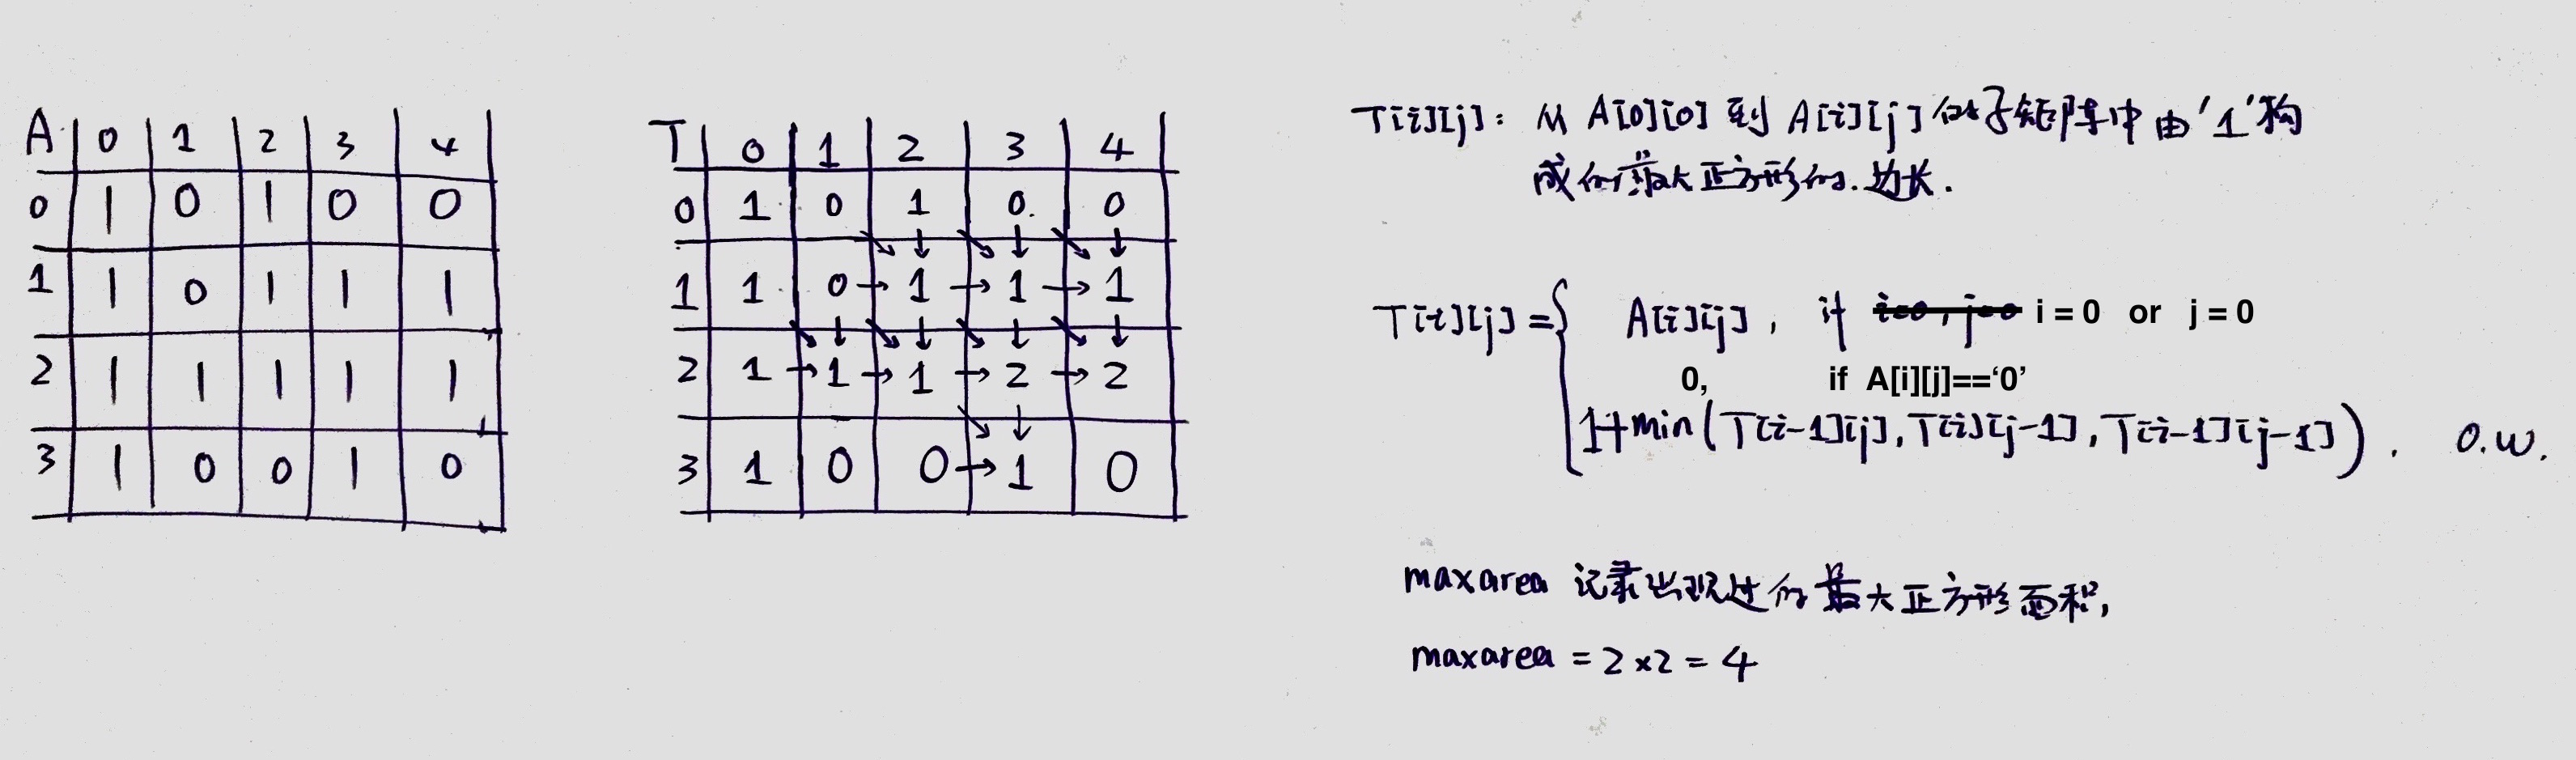 A 0 1 2 3 4
0 1 0 1 0 0
1 1 0 1 1 1
2 1 1 1 1 1
3 1 0 0 1 0
T 0 1 2 3 4
0 1 0 1 0 0
1 1 0→1→1→1
2 1→1→1→2→2
3 1 0 0→1 0
T[i][j]: 从 A[0][0] 到 A[i][j] 的子矩阵中由'1'构
成的最大正方形的边长.
T[i][j] = { A[i][j], if i=0, j=0 i = 0 or j = 0
0, if A[i][j]==‘0’
1+min(T[i-1][j], T[i][j-1], T[i-1][j-1]). O.W.
maxarea 记录出现过的最大正方形面积,
maxarea = 2×2 = 4